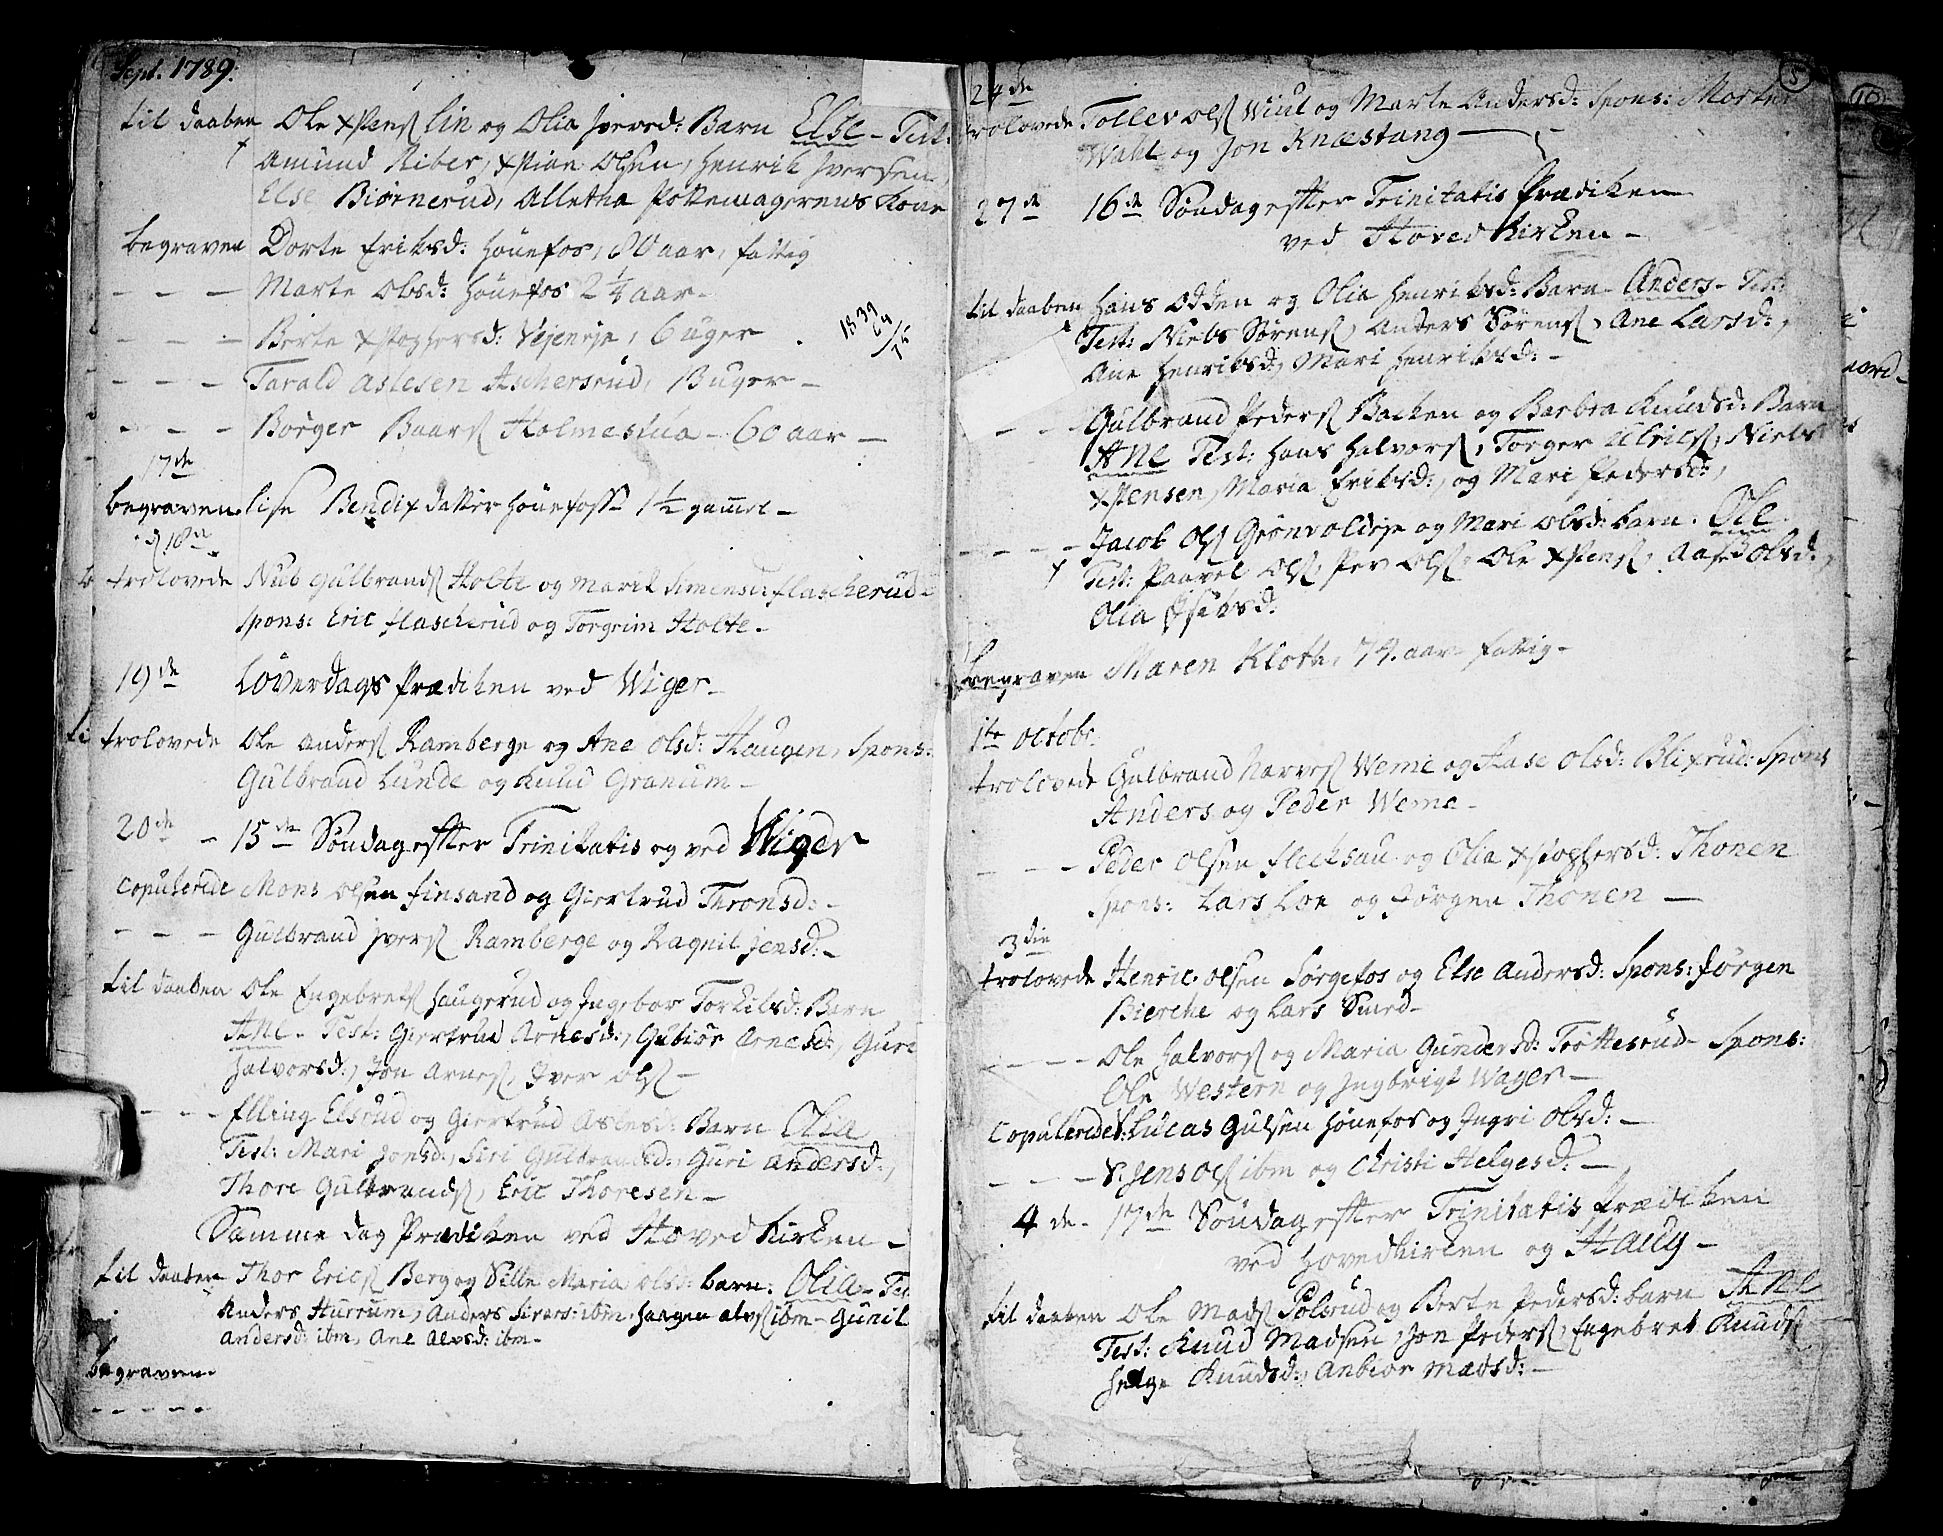 Sept. 1789.
til daaben Ole Xstens lin og Olia Iversd: Barn Else - Test:
Amund Riber, Xstian Olsen, Henrik Iversen,
Else Biørnerud, Alletha Pottemagerens Kone
begraven Dorte Eriksd: Hönefos, 80 aar, fattig
- - - Marte Olsd: Hönefos 2 1/4 aar -
- - - Berte Xstophersd: Vejeneje, 6 uger
- - - Tarald Aslesen Aschersrud, 13 uger -
- - - Börger Baars Holmestua - 60 aar -
17de
begraven Lise Bendix datter Hönefoss 1 1/2 gammel -
d 18de
trolovede Nub Gulbrands Holte og Marit Simensd: Flascherud -
Spons: Eric Flascherud og Torgrim Holte -
19de Löverdags Prædiken ved Wiger -
trolovede Ole Anders Ramberge og Ane Olsd: Haugen, Spons:
Gulbrand Lunde og Knud Granum -
20de - 15de Söndag efter Trinitatis og ved Wiger
Copulerede Mons Olsen Finsand og Giertrud Thronsd: -
- - - Gulbrand Ivers Ramberge og Ragnil Jensd: -
til daaben Ole Engebrets Haugerud og Ingebor Torkilsd: Barn
Ane - Test: Giertrud Arnesd:, Gubiör Arnesd:, Guri
Halvorsd:, Jon Arnes, Iver Ols -
- - - Elling Elsrud og Giertrud Aslesd: Barn Olia
Test: Mari Jonsd:, Siri Gulbrandsd:, Guri Andersd:,
Thore Gulbrands, Eric Thoresen -
Samme dag Prædiken ved Hovedkirken -
til daaben Thor Erics Berg og Sille Maria Olsd: barn: Olia - Te
Anders Hurrum, Anders Sivers: ibm, Haagen Alvs ibm - Gunil
Andersd: ibm, Ane Alvsd: ibm -
begraven
- - - - -
5
24de
trolovede Tollev Ols Wiul og Marte Andersd: Spons: Morten
Wahl og Jon Knæstang -
27de 16de Söndag efter Trinitatis Prædiken
ved Hovedkirken -
til daaben Hans Odden og Olia Henriksd: Barn - Anders - Test:
Test: Niels Sörens, Anders Sörens, Ane Larsd:,
Ane Henriksd, Mari Henriksd: -
- - - Gulbrand Peders Backen og Barbra Knudsd: Barn
Ane Test: Hans Halvors, Torger Ulriks, Niels
Xstensen, Maria Eriksd:, og Mari Pedersd:,
- - - - Jacob Ols Grönvoldeje og Mari Olsd: barn. Ole.
Test: Paavel Ols, Per Ols, Ole Xstens, Aase Olsd:,
Olia Iseksd:
begraven Maren Kloth, 74. aar - fattig -
1te Octobr.
trolovede Gulbrand Narves Weme og Aase Olsd: Blixrud: Spons
Anders og Peder Weme -
- - - Peder Olsen Flecksau og Olia Xstophersd: Thonen
Spons: Lars Loe og Jörgen Thonen -
3die
trolovede Henric Olsen Sörgefos og Else Andersd: Spons: Jörgen
Bierche og Lars Smed -
- - - - Ole Halvors og Maria Gundersd: Trötterud - Spons:
Ole Western og Ingbrigt Wager -
Copulerede S: Lucas Gulsen Hönefos og Ingri Olsd: -
- - - S: Jens Ols ibm og Christi Helgesd: -
4de - 17de Söndag efter Trinitatis Prædiken
ved Hovedkirken og Haug -
til daaben Ole Mads Polsrud og Berte Pedersd: barn Ane
Test: Knud Madsen, Jon Peders, Engebret Knuds
Helge Knudsd:, Anbiör Madsd: -